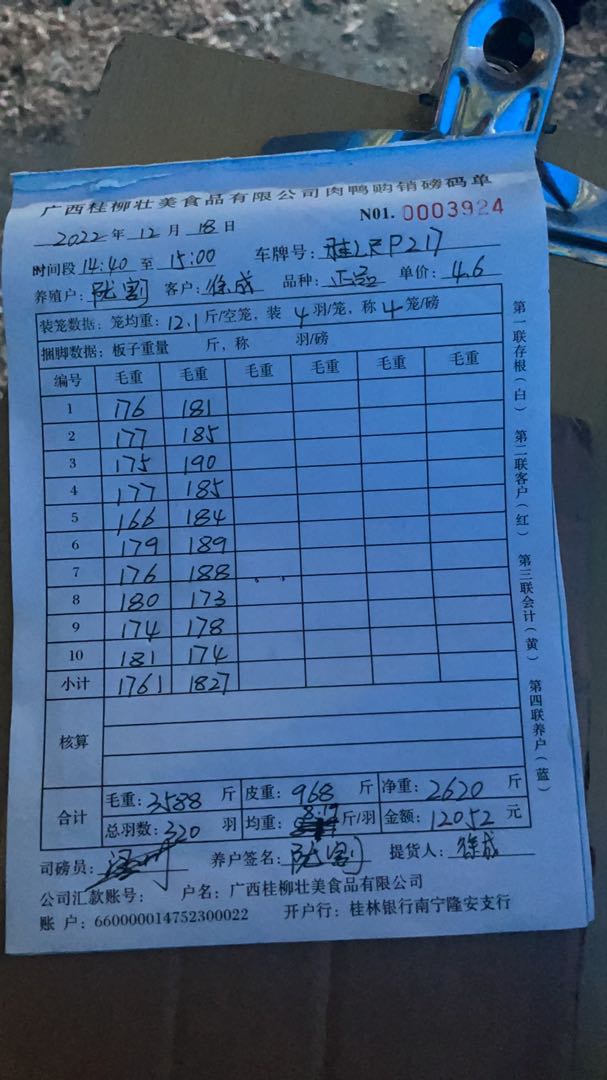 广西桂柳壮美食品有限公司肉鸭购销磅码单
2022年12月18日 N01. 0003924
时间段 14:40 至 15:00 车牌号: 桂LRP217
养殖户: 陇割 客户: 徐成 品种: 正品 单价: 4.6
装笼数据: 笼均重: 12.1 斤/空笼, 装 4 羽/笼, 称 4 笼/磅
捆脚数据: 板子重量 斤, 称 羽/磅
编号 毛重 毛重 毛重 毛重 毛重 毛重
1 176 181
2 177 185
3 175 190
4 177 185
5 166 184
6 179 189
7 176 188
8 180 173
9 174 178
10 181 174
小计 1761 1827
核算
合计 毛重: 3588 斤 皮重: 968 斤 净重: 2620 斤
总羽数: 320 羽 均重: 8.19 斤/羽 金额: 12052 元
司磅员: 养户签名: 陇割 提货人: 徐成
公司汇款账号: 户名: 广西桂柳壮美食品有限公司
账 户: 660000014752300022 开户行: 桂林银行南宁隆安支行
第一联存根(白) 第二联客户(红) 第三联会计(黄) 第四联养户(蓝)